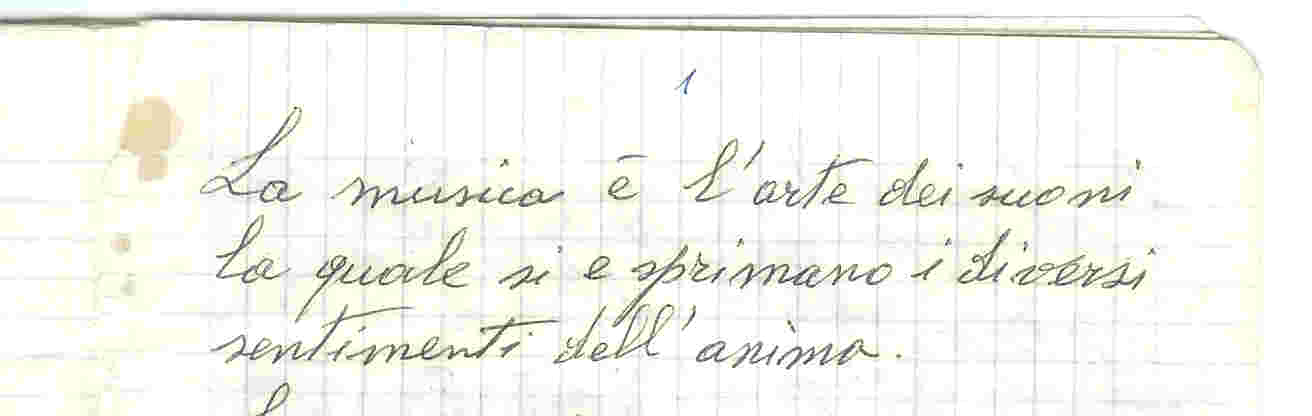 1
La musica è l'arte dei suoni
la quale si e sprimano i diversi
sentimenti dell'anima.